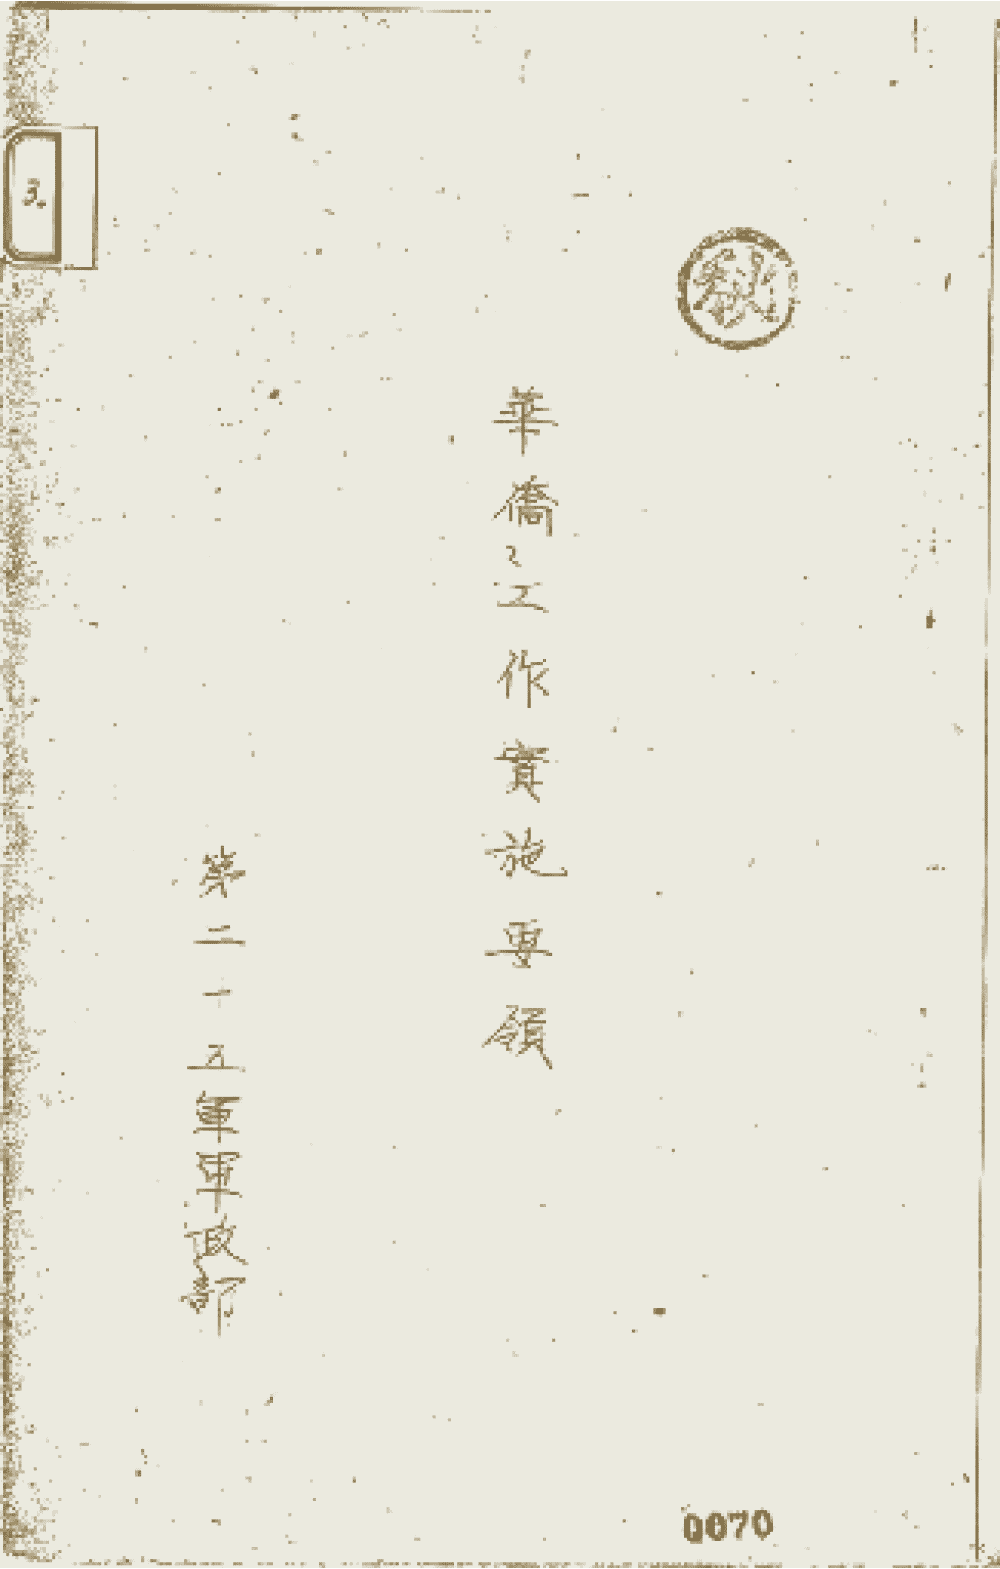 華僑工作實施要領
第二十五軍軍政部
3.
0070